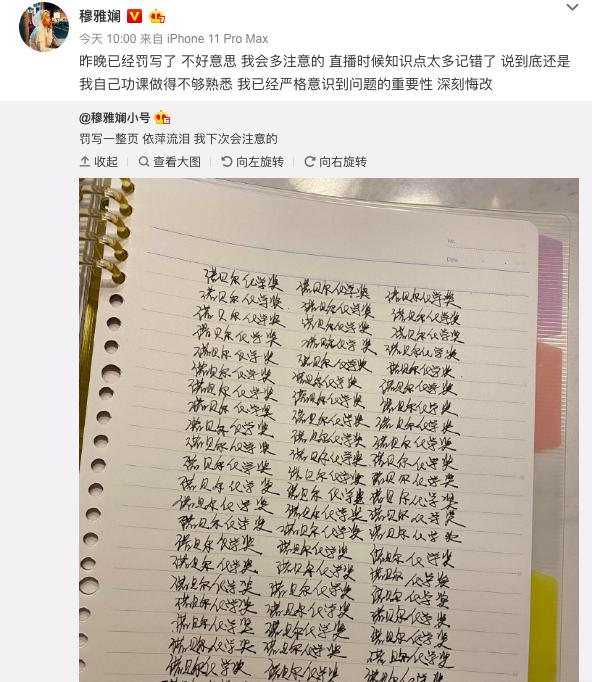 穆雅斓
今天 10:00 来自 iPhone 11 Pro Max
昨晚已经罚写了 不好意思 我会多注意的 直播时候知识点太多记错了 说到底还是
我自己功课做得不够熟悉 我已经严格意识到问题的重要性 深刻悔改
@穆雅斓小号
罚写一整页 依萍流泪 我下次会注意的
收起 查看大图 向左旋转 向右旋转
No.
Date
诺贝尔化学奖 诺贝尔化学奖 诺贝尔化学奖
诺贝尔化学奖 诺贝尔化学奖 诺贝尔化学奖
诺贝尔化学奖 诺贝尔化学奖 诺贝尔化学奖
诺贝尔化学奖 诺贝尔化学奖 诺贝尔化学奖
诺贝尔化学奖 诺贝尔化学奖 诺贝尔化学奖
诺贝尔化学奖 诺贝尔化学奖 诺贝尔化学奖
诺贝尔化学奖 诺贝尔化学奖 诺贝尔化学奖
诺贝尔化学奖 诺贝尔化学奖 诺贝尔化学奖
诺贝尔化学奖 诺贝尔化学奖 诺贝尔化学奖
诺贝尔化学奖 诺贝尔化学奖 诺贝尔化学奖
诺贝尔化学奖 诺贝尔化学奖 诺贝尔化学奖
诺贝尔化学奖 诺贝尔化学奖 诺贝尔化学奖
诺贝尔化学奖 诺贝尔化学奖 诺贝尔化学奖
诺贝尔化学奖 诺贝尔化学奖 诺贝尔化学奖
诺贝尔化学奖 诺贝尔化学奖 诺贝尔化学奖
诺贝尔化学奖 诺贝尔化学奖 诺贝尔化学奖
诺贝尔化学奖 诺贝尔化学奖 诺贝尔化学奖
诺贝尔化学奖 诺贝尔化学奖 诺贝尔化学奖
诺贝尔化学奖 诺贝尔化学奖 诺贝尔化学奖
诺贝尔化学奖 诺贝尔化学奖 诺贝尔化学奖
诺贝尔化学奖 诺贝尔化学奖 诺贝尔化学奖